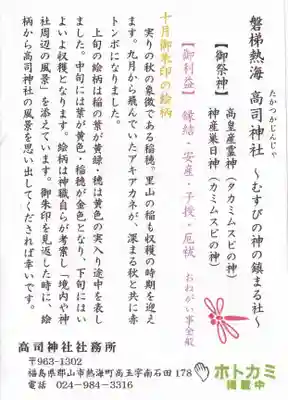 磐梯熱海 高司神社 ~むすびの神の鎮まる社~
たかつかじんじゃ
【御祭神】
高皇産霊神(タカミムスビの神)
神産巣日神(カミムスビの神)
【御利益】 縁結・安産・子授・厄祓 おねがい事全般
十月御朱印の絵柄
実りの秋の象徴である稲穂。里山の稲も収穫の時期を迎え
ます。九月から飛んでいたアキアカネが、深まる秋と共に赤
トンボになりました。
上旬の絵柄は稲の葉が黄緑・穂は黄色の実入り途中を表し
ました。中旬には葉が黄色・稲穂が金色となり、下旬にはい
よいよ収穫となります。絵柄は神職自らが考案し「境内や神
社周辺の風景」を添えています。御朱印を見返した時に、絵
柄から高司神社の風景を思い出してくだされば幸いです。
高司神社社務所
〒963-1302
福島県郡山市熱海町高玉字南石田 178
電話 024-984-3316
ホトカミ
掲載中